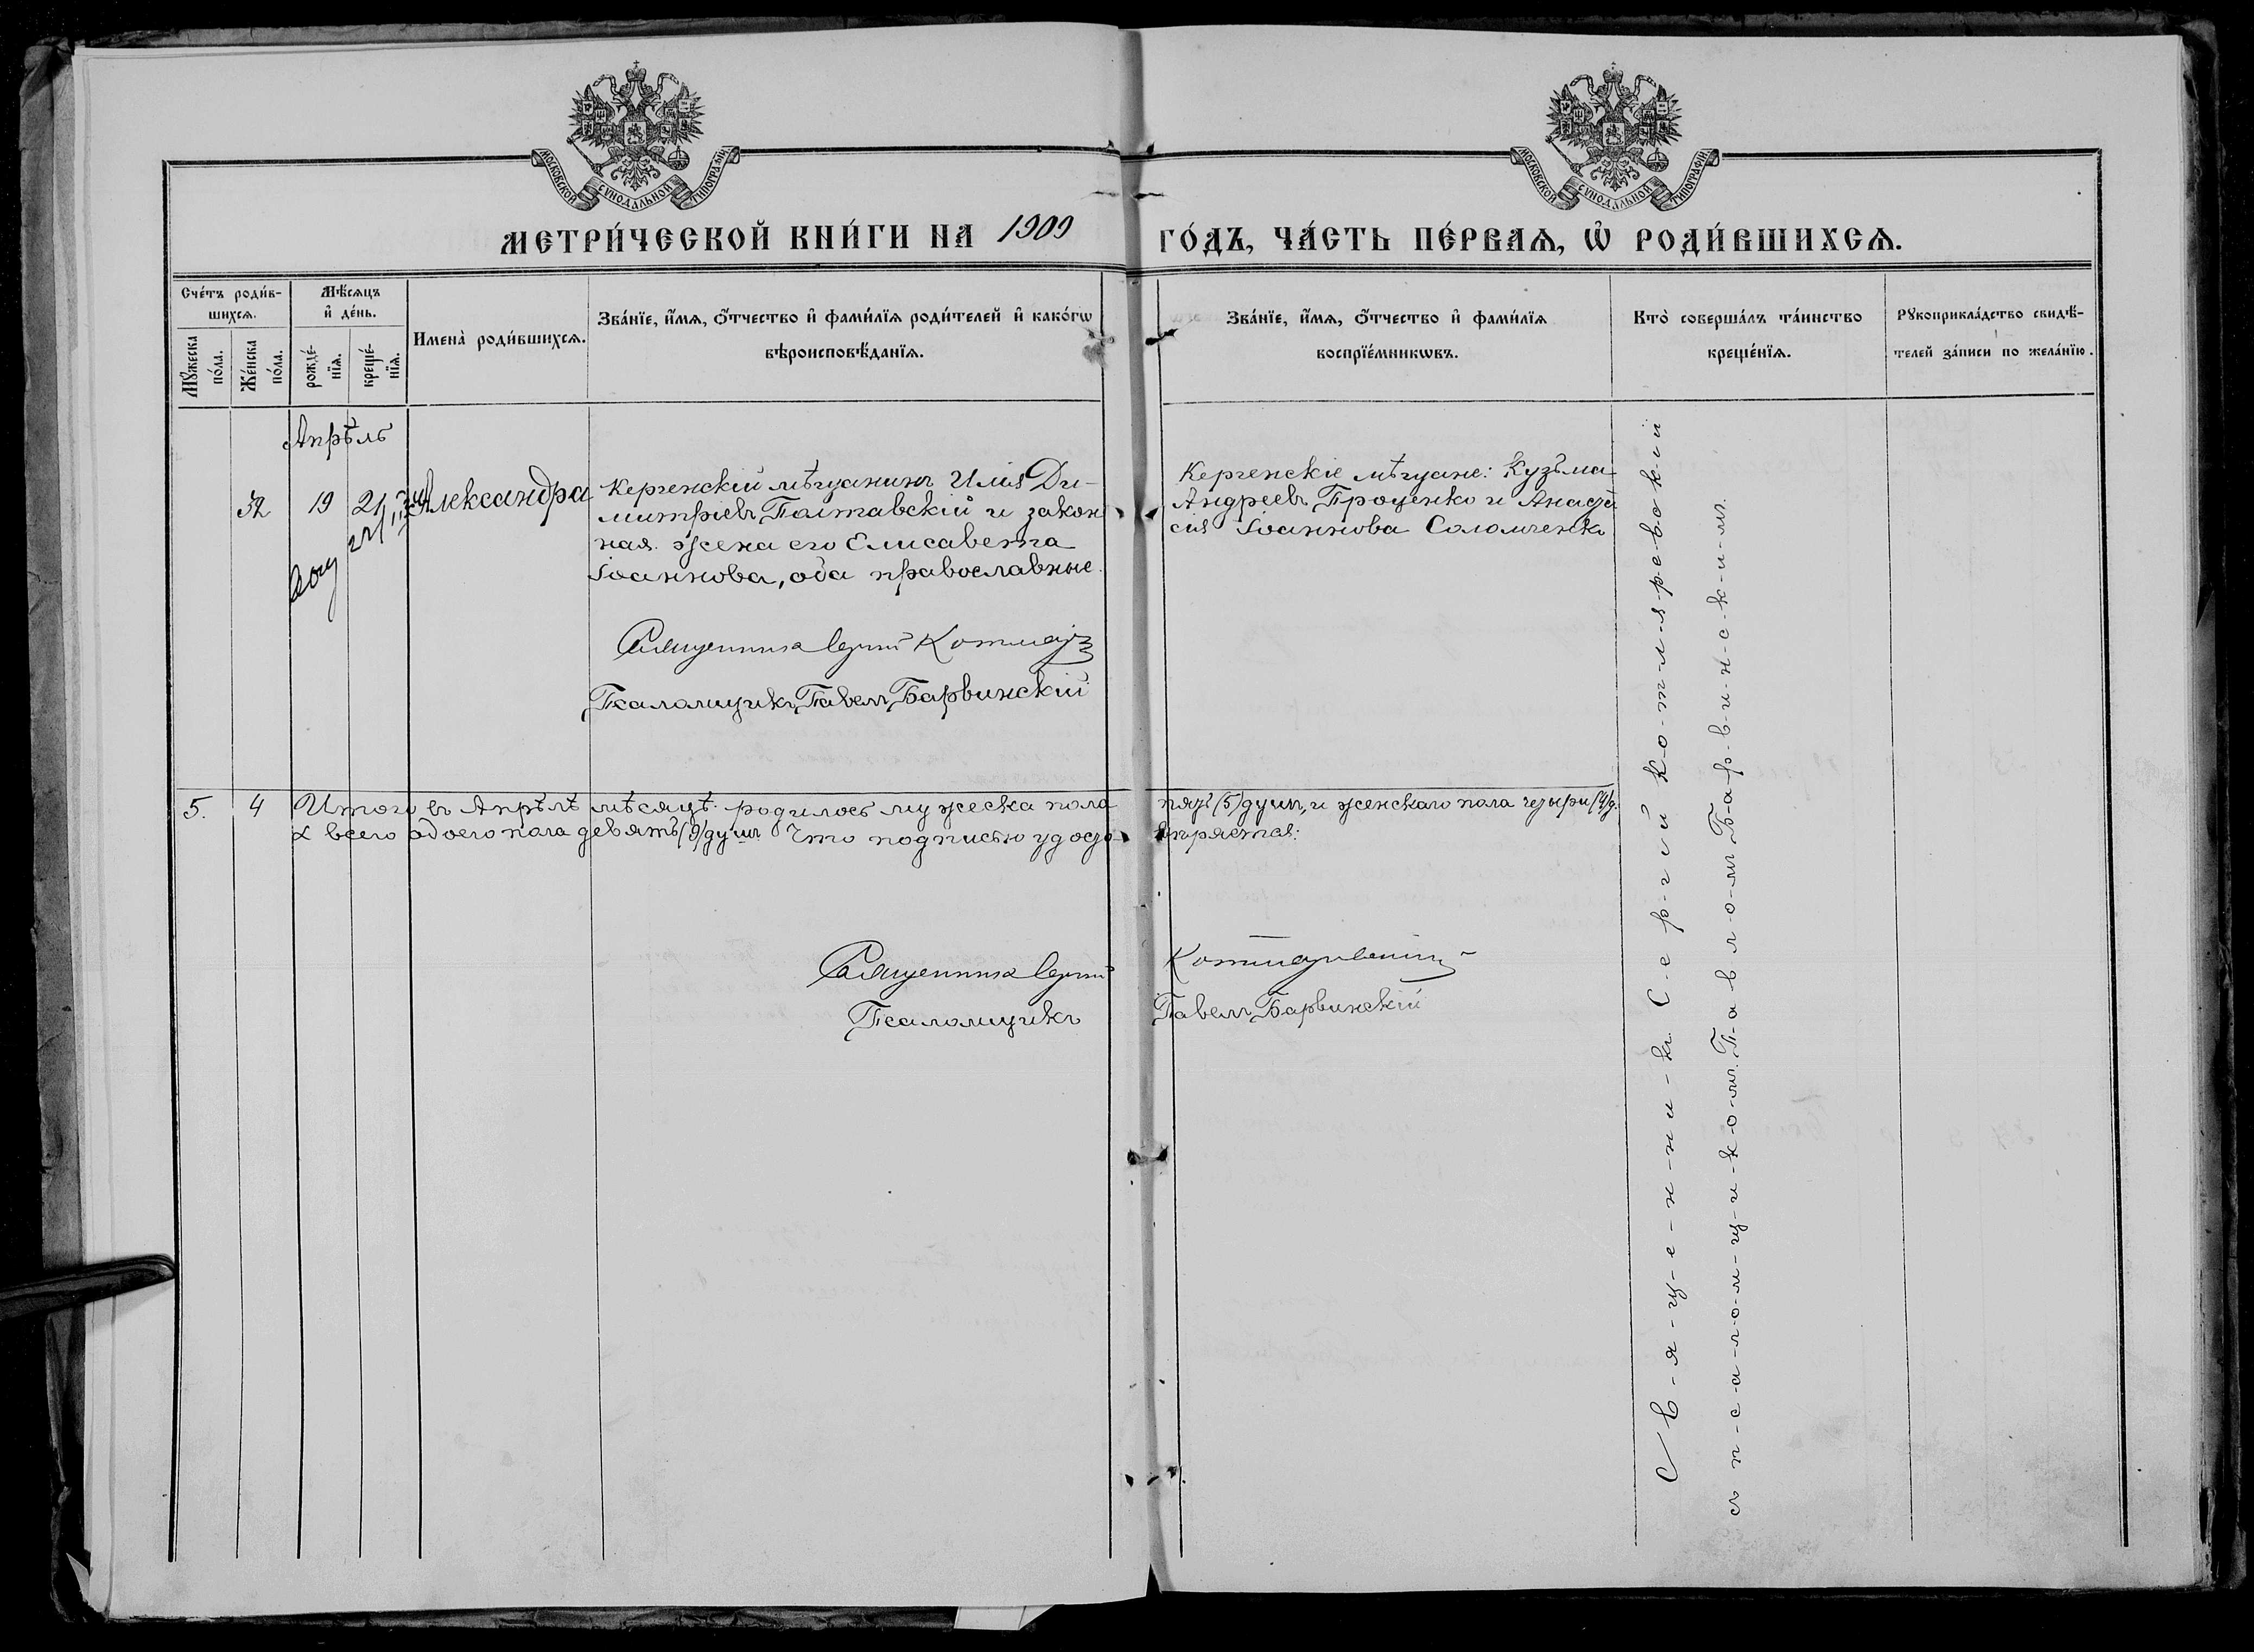 МОСКОВСКОЙ СѴНОДАЛЬНОЙ ТИПОГРАФІИ
МОСКОВСКОЙ СѴНОДАЛЬНОЙ ТИПОГРАФІИ
МЕТРИ́ЧЕСКОЙ КНИ́ГИ НА 1909
ГО́ДЪ, ЧА́СТЬ ПЕ́РВАѦ, Ѽ РОДИ́ВШИХСѦ.
Сче́тъ роди́в-
шихсѧ.
Мꙋ́жеска
по́ла.
Же́нска
по́ла.
Мѣ́сѧцъ
и҆ де́нь.
рожде́-
нїѧ.
креще́-
нїѧ.
Имена̀ роди́вшихсѧ.
Зва́нїе, и҆́мѧ, ѻ҆́тчество и҆ фами́лїѧ роди́телей и҆ како́гѡ
вѣроисповѣ́данїѧ.
Зва́нїе, и҆́мѧ, ѻ҆́тчество и҆ фами́лїѧ
воспрїе́мникѡвъ.
Кто̀ соверша́лъ та́инство
креще́нїѧ.
Рꙋкоприкла́дство свидѣ́-
телей за́писи по жела́нїю.
Апрѣль
32
19
21
Александра
Керченскій мѣщанинъ Илія Ди-
митріевъ Полтавскій и закон
ная жена его Елисавета
Іоаннова, оба православные.
Священникъ Сергій Котляр
Псаломщикъ Павелъ Барвинскій
Керченскіе мѣщане: Кузьма
Андреевъ Проценко и Анаста
сія Іоаннова Соломченко
5.
4
Итого въ Апрѣлѣ мѣсяцѣ родилось мужеска пола
пять (5) душъ, и женскаго пола четыри (4) д.
а всего обоего пола девять (9) душъ. Что подписью удосто-
вѣряется:
Священникъ Сергій
Котляревскій
Псаломщикъ
Павелъ Барвинскій
С-в-я-щ-е-н-н-и-къ С-е-р-г-і-й К-о-т-л-я-р-е-в-с-к-і-й
съ п-с-а-л-о-м-щ-и-к-о-мъ П-а-в-л-о-мъ Б-а-р-в-и-н-с-к-и-мъ.